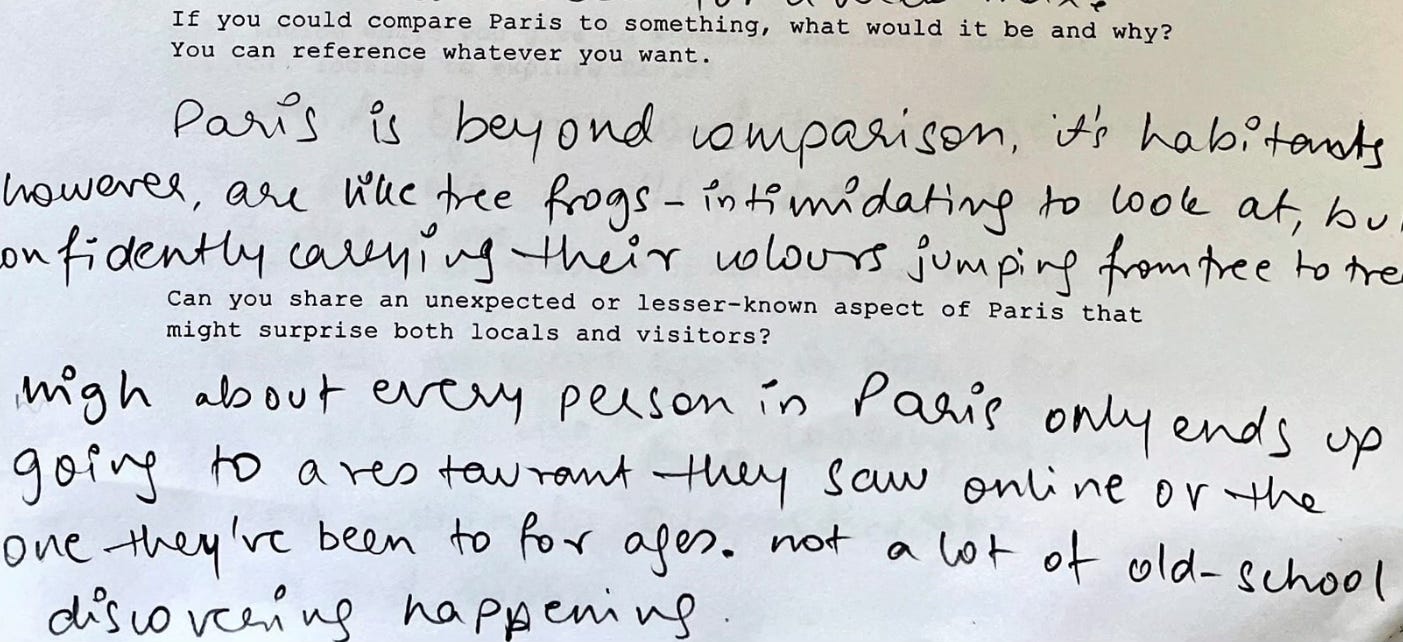 If you could compare Paris to something, what would it be and why?
You can reference whatever you want.
Paris is beyond comparison, it's habitants
however, are like tree frogs - intimidating to look at, bu
onfidently carrying their colours jumping from tree to tre
Can you share an unexpected or lesser-known aspect of Paris that
might surprise both locals and visitors?
nigh about every person in Paris only ends up
going to a restaurant they saw online or the
one they've been to for ages. not a lot of old-school
discovering happening.